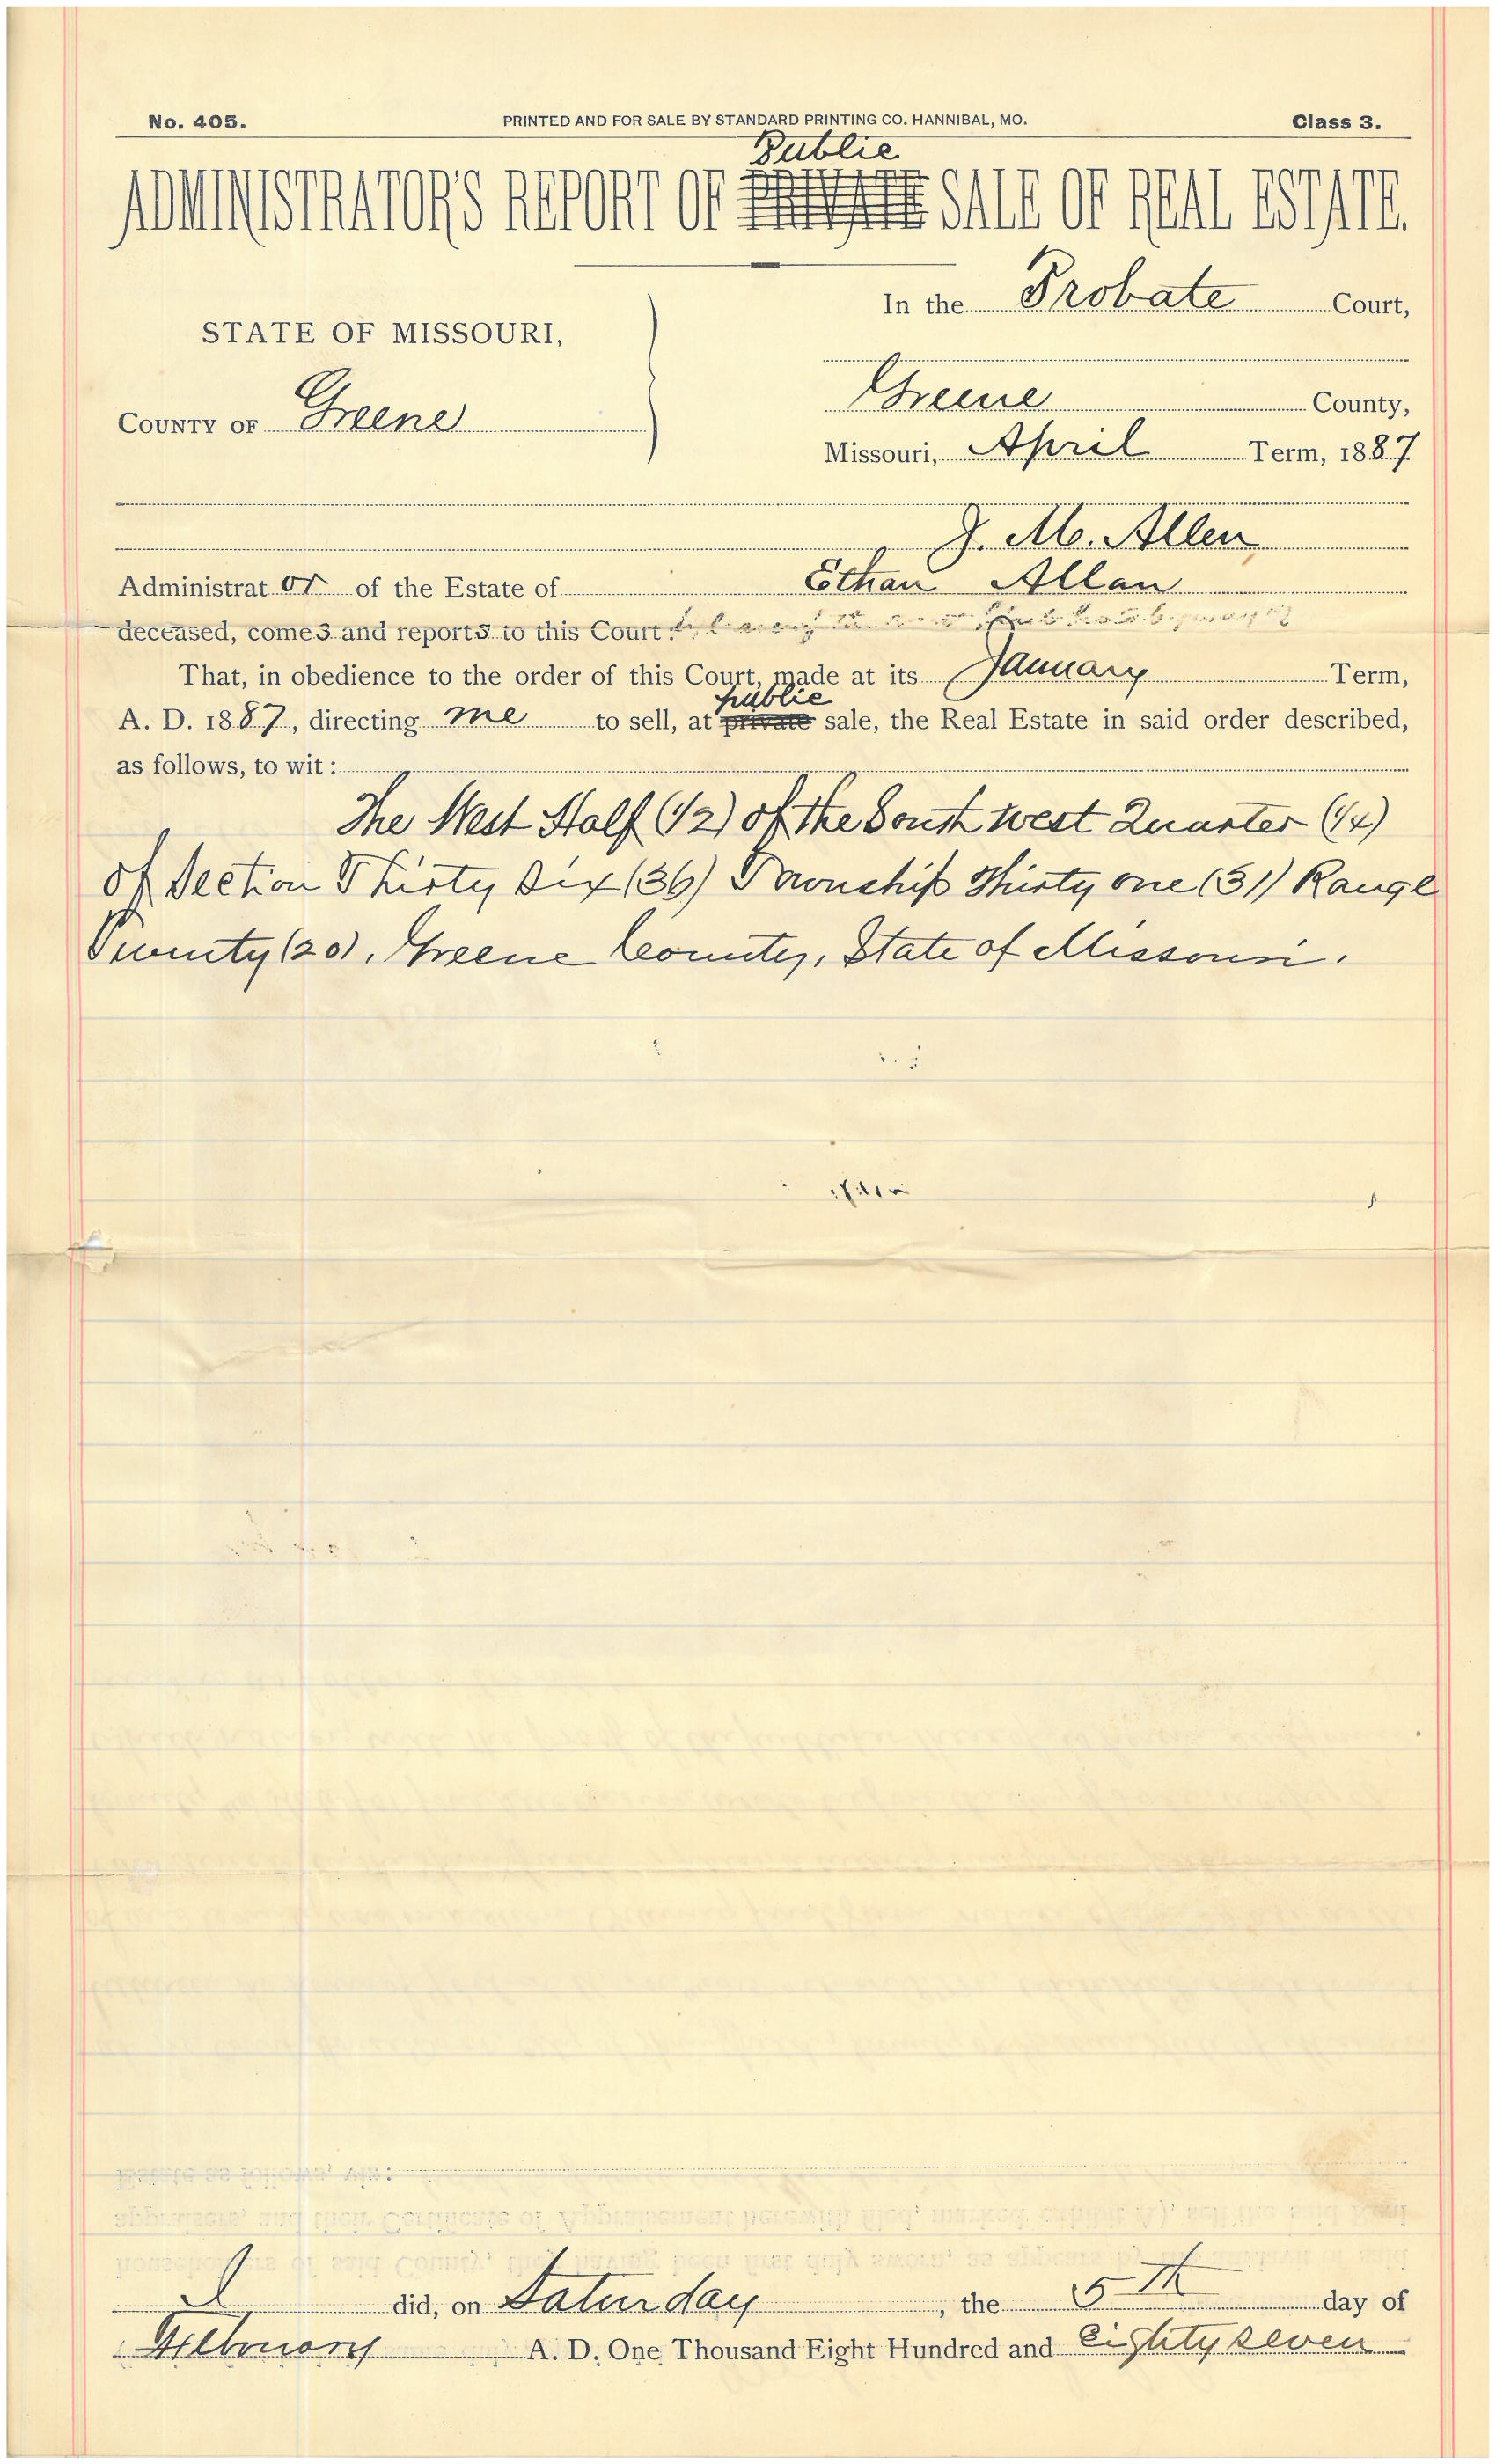 No. 405.
PRINTED AND FOR SALE BY STANDARD PRINTING CO. HANNIBAL, MO.
Class 3.
Public
ADMINISTRATOR'S REPORT OF PRIVATE SALE OF REAL ESTATE.
In the Probate Court,
STATE OF MISSOURI,
Greene County,
COUNTY OF Greene
Missouri, April Term, 1887
J. M. Allen
Administrator of the Estate of Ethan Allan
deceased, comes and reports to this Court:
That, in obedience to the order of this Court, made at its January Term,
public
A. D. 1887, directing me to sell, at private sale, the Real Estate in said order described,
as follows, to wit:
The West Half (1/2) of the South west Quarter (1/4)
of Section Thirty Six (36) Township Thirty one (31) Range
Twenty (20), Greene County, State of Missouri.
I did, on Saturday, the 5th day of
February A. D. One Thousand Eight Hundred and Eighty seven